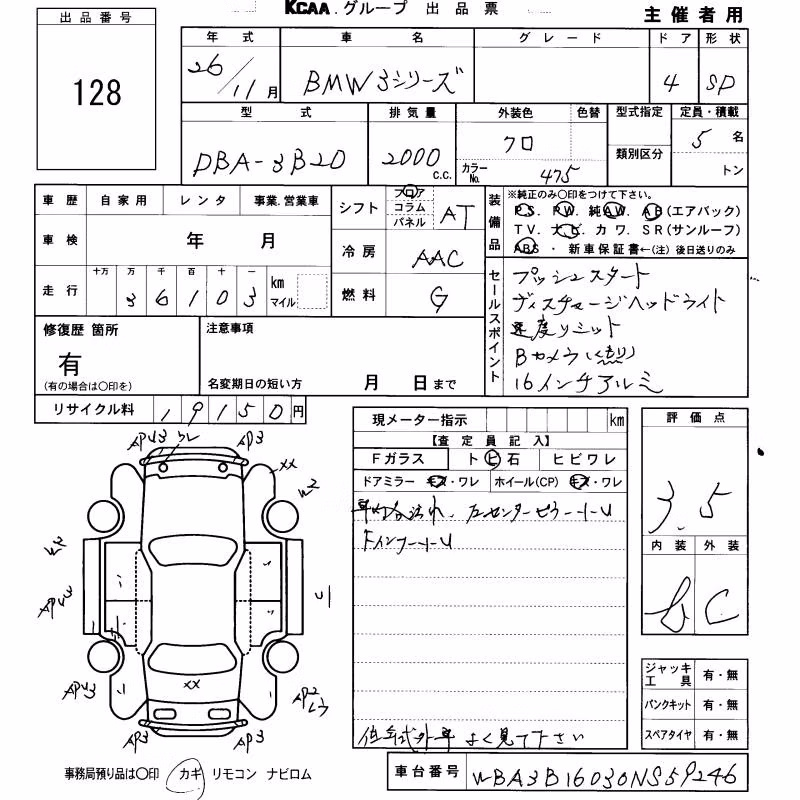 KCAA グループ 出品票
主催者用
出品番号
128
年式 車名 グレード ドア 形状
26/11月 BMW 3シリーズ 4 SD
型式 排気量 外装色 色替 型式指定 定員・積載
DBA-3B20 2000 c.c. クロ カラーNo. 475 類別区分 5名 トン
車歴 自家用 レンタ 事業.営業車
車検 年 月
走行 十万 万 千 百 十 一 km マイル
36103
シフト フロア コラム パネル AT
冷房 AAC
燃料 G
装備品
※純正のみ〇印をつけて下さい。
PS. PW. 純AW. AB(エアバック)
TV. ナビ カワ. SR(サンルーフ)
ABS ・ 新車保証書←(注)後日送りのみ
セールスポイント
プッシュスタート
ディスチャージヘッドライト
速度リミット
Bカメラ(くもり)
16インチアルミ
修復歴 箇所
有
(有の場合は〇印を)
注意事項
名変期日の短い方 月 日まで
リサイクル料 19150円
現メーター指示 km
【査定員記入】
Fガラス ト ヒ 石 ヒビワレ
ドアミラー キズ・ワレ ホイール(CP) キズ・ワレ
Fインナー-U
下さい
評価点
3.5
内装 外装
b C
ジャッキ工具 有・無
パンクキット 有・無
スペアタイヤ 有・無
AP43 ワレ AP3
XX
W2
AP43
AP43
XX
AP2
AP3 AP3
事務局預り品は〇印 カギ リモコン ナビロム
車台番号 WBA3B16030NS59246